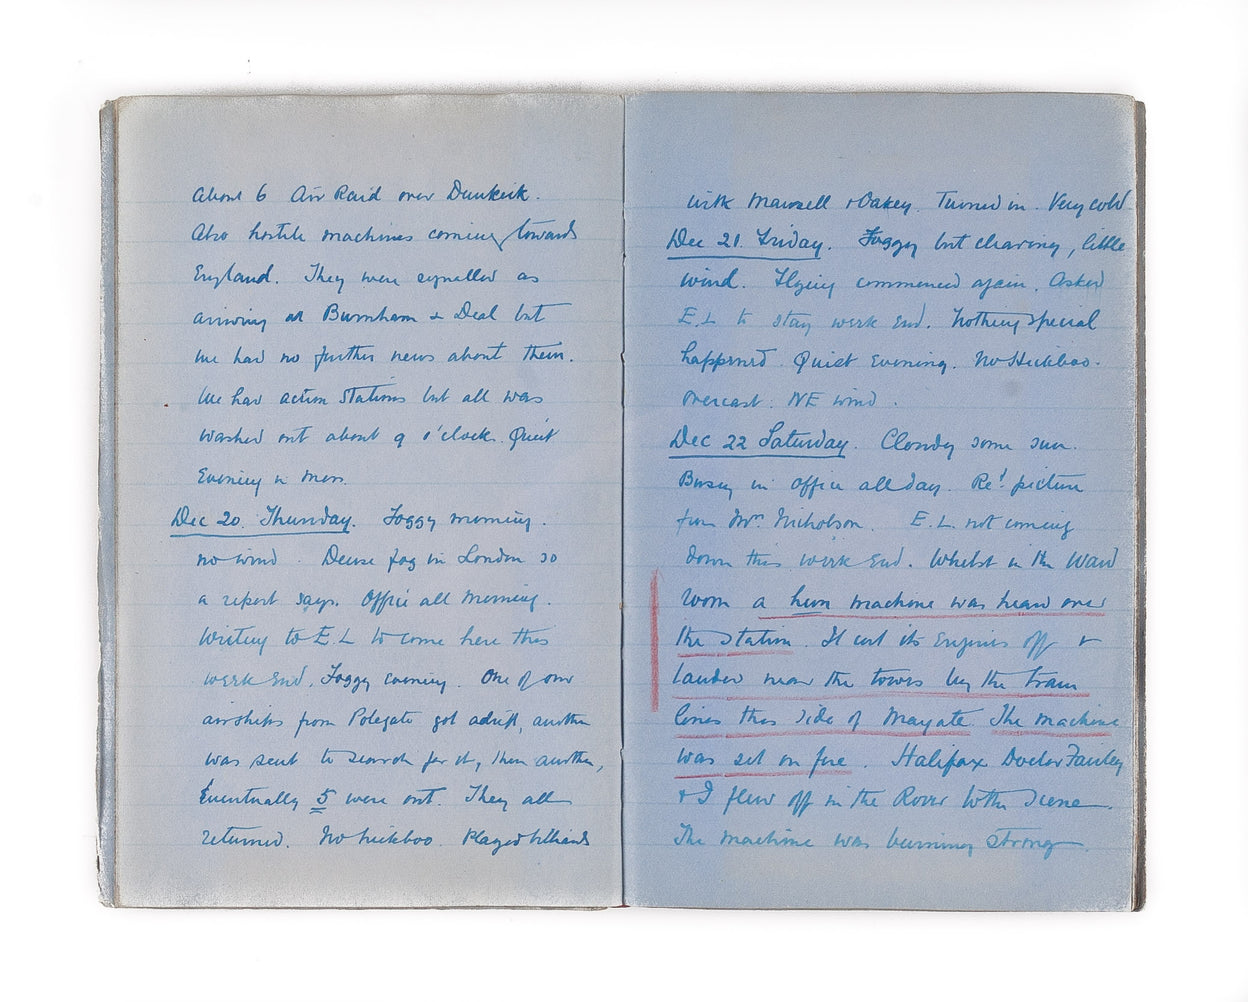 About 6 Air Raid over Dunkirk.
Also hostile machines coming towards
England. They were signalled as
arriving at Burnham & Deal but
we had no further news about them.
We had action stations but all was
washed out about 9 o'clock. Quiet
Evening in mess.
Dec 20. Thursday. Foggy morning.
no wind. Dense fog in London so
a report says. Office all morning.
Writing to E.L to come here this
week end. Foggy evening. One of our
airships from Polegate got adrift, another
was sent to search for it, then another,
Eventually 5 were out. They all
returned. No hickboo. Played billiards
with Maxsell & Oakey. Turned in. Very cold
Dec 21. Friday. Foggy but clearing, little
wind. Flying commenced again. Asked
E.L to stay week end. Nothing special
happened. Quiet Evening. No Hickboo.
Overcast. NE wind.
Dec 22 Saturday. Cloudy some sun.
Busy in office all day. Re'd picture
from Mrs Nicholson. E.L. not coming
down this week end. Whilst in the Ward
room a hun machine was heard over
the station. It cut its Engines off &
landed near the towers by the tram
lines this side of Margate. The machine
was set on fire. Halifax Doctor
& I flew off in the Rover to the Scene.
The machine was burning strong